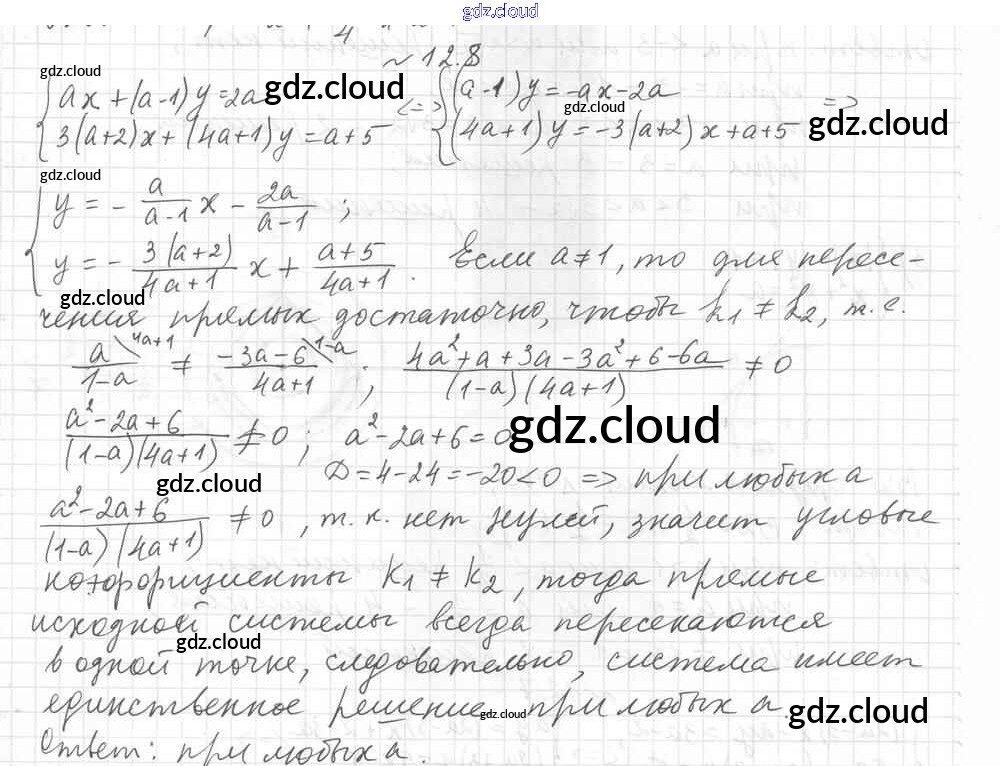 gdz.cloud
~ 12.8
gdz.cloud
{ ax + (a-1)y = 2a gdz.cloud <=> { (a-1)y = -ax - 2a gdz.cloud
{ 3(a+2)x + (4a+1)y = a+5 { (4a+1)y = -3(a+2)x + a+5 => gdz.cloud
gdz.cloud
{ y = - a/(a-1) x - 2a/(a-1) ;
{ y = - 3(a+2)/(4a+1) x + (a+5)/(4a+1) . Если a ≠ 1, то для пересе-
gdz.cloud
чения прямых достаточно, чтобы k₁ ≠ k₂, т.е.
a\4a+1/(1-a) ≠ -3a-6\1-a/(4a+1) ; (4a²+a+3a-3a²+6-6a)/((1-a)(4a+1)) ≠ 0
(a²-2a+6)/((1-a)(4a+1)) ≠ 0 ; a²-2a+6=0 gdz.cloud
gdz.cloud D=4-24=-20<0 => при любых a
(a²-2a+6)/((1-a)(4a+1)) ≠ 0 , т.к. нет нулей, значит угловые
коэффициенты k₁ ≠ k₂, тогда прямые
исходной системы всегда пересекаются
gdz.cloud
в одной точке, следовательно, система имеет
единственное решение gdz.cloud при любых a. gdz.cloud
Ответ: при любых a.